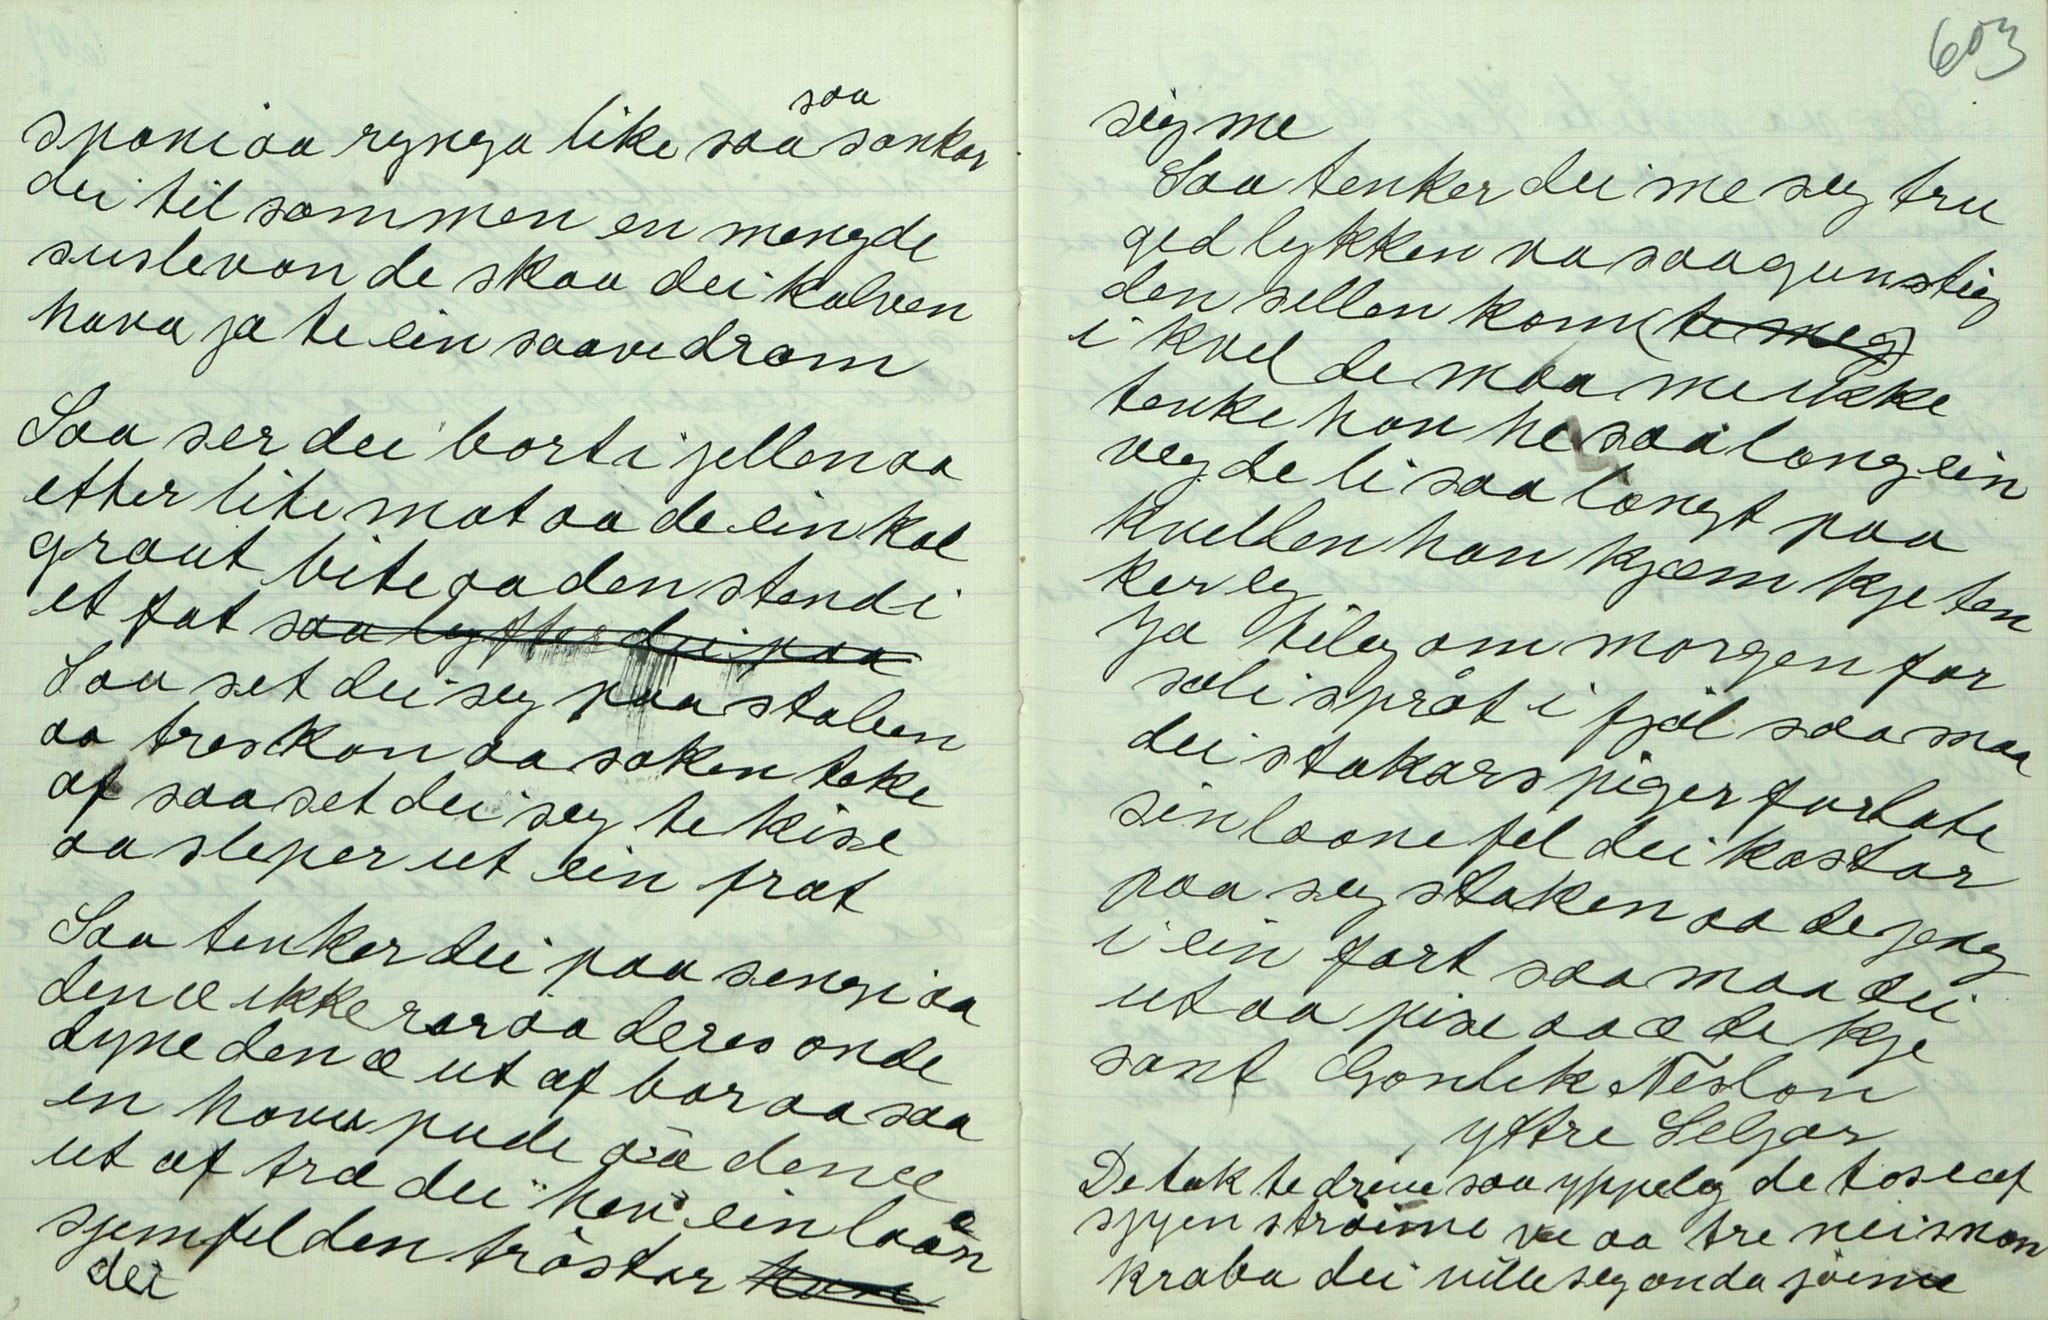 saa
spani aa rynga like saa sankar
dei til sammen en mengde
suslevan de skaa dei kalven
hava ja te ein saavedram
Saa ser dei bort i jellen aa
etter lite mat aa de ein kal
graut bite aa den stend i
et fat saa lyfter dei paa
Saa set dei seg paa stolen
aa treskon aa saken teke
af saa set dei seg te kise
aa sleper ut ein frat
Saa tenker dei paa sengi aa
den æ ikke rar aa deres onde
dyne den æ ut af bar aa saa
en hovu pude aa den æ
ut af træ dei hev ein laan
sjemfel den tröstar
dei
603
sig me
Saa tenker dei me seg tru
ged lykken va saa gunstig
den sellen kom (te meg)
i kvel de maa me ikke
tenke han he saa long ein
veg de li saa langt paa
kvellen han kjæm kje ten
ker eg
Ja tileg om morgen for
sole språt i fjöl saa maa
dei stakars piger forlate
sin laane fel dei kastar
paa seg staken aa de jeng
i ein fart saa maa dei
ut aa pise aa æ de kje
sant Gonlek Neslon
yttre Seljor
De tok te drive saa yppeleg de tose af
sjyen ströime ve aa tre neisnon
kraba dei ville seg onda jöime